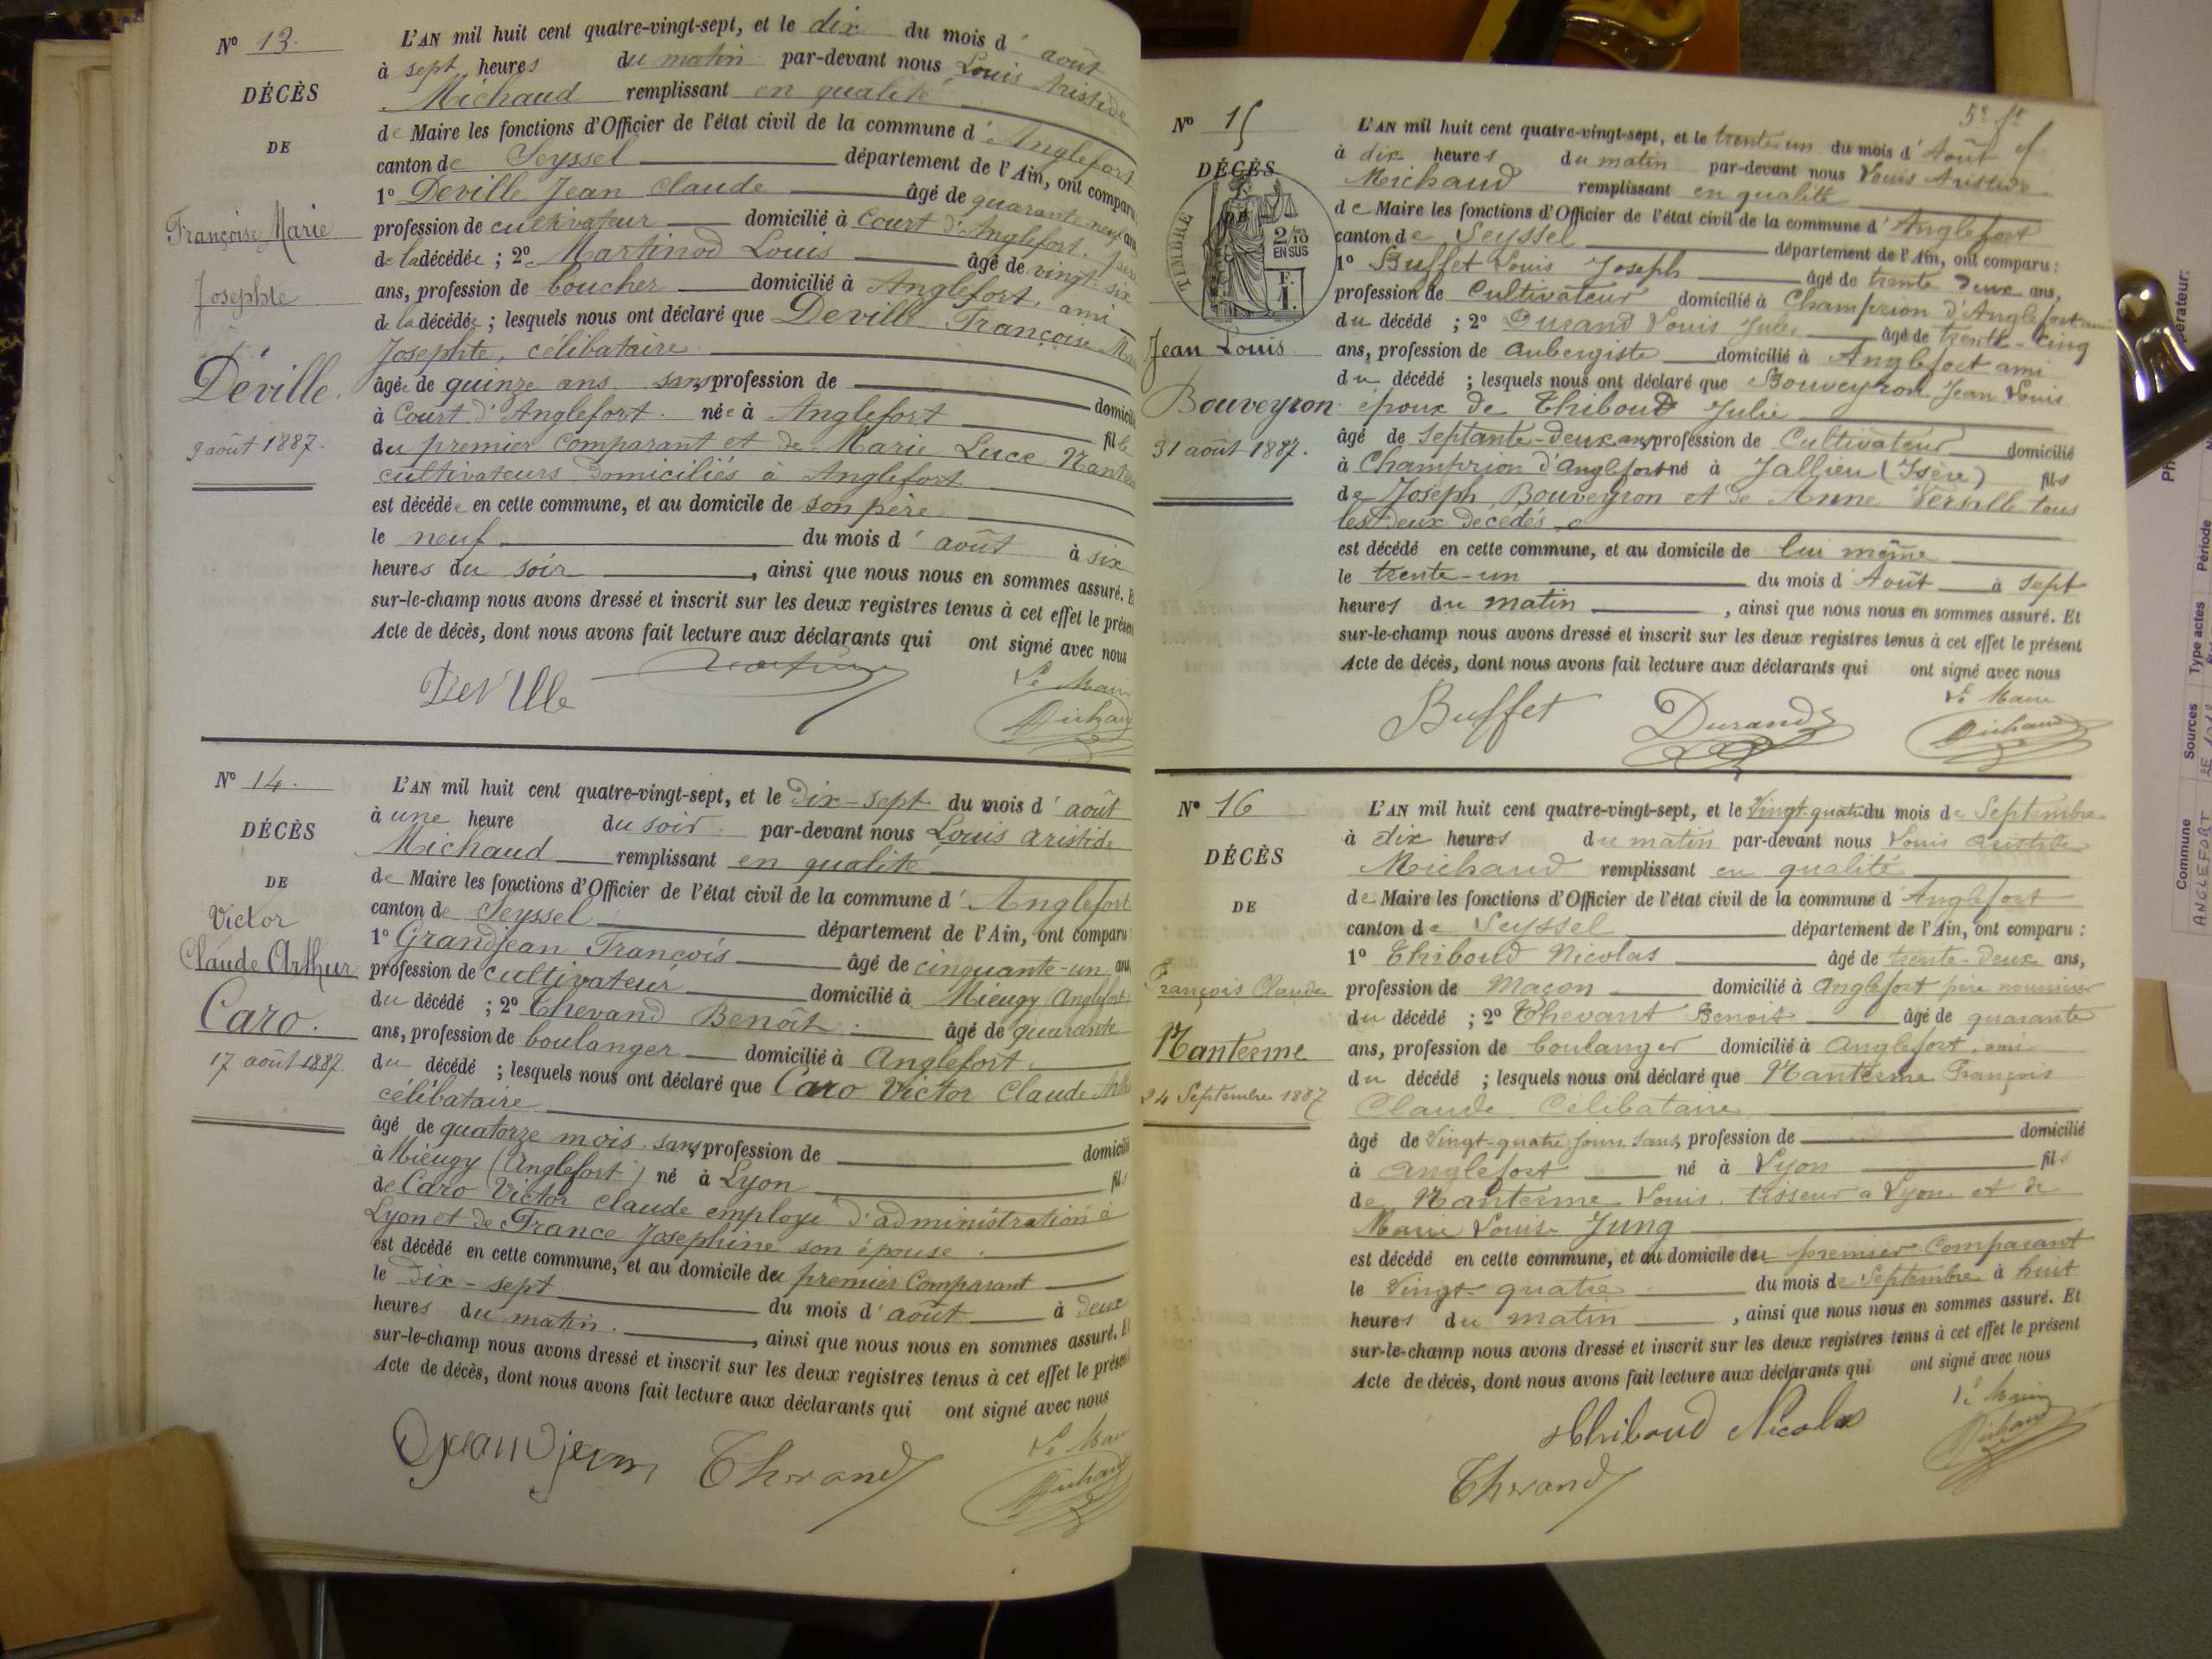 N° 13.
DÉCÈS
DE
Françoise Marie
Josephte
Déville.
9 août 1887.
L'AN mil huit cent quatre-vingt-sept, et le dix du mois d'août
à sept heures du matin par-devant nous Louis Aristide
Michaud remplissant en qualité
de Maire les fonctions d'Officier de l'état civil de la commune d'Anglefort
canton de Seyssel département de l'Ain, ont comparu
1° Deville Jean Claude âgé de quarante-neuf ans
profession de cultivateur domicilié à Court d'Anglefort, père
de la décédée ; 2° Martinod Louis âgé de vingt-six
ans, profession de boucher domicilié à Anglefort, ami
de la décédée ; lesquels nous ont déclaré que Deville Françoise Marie
Josephte, célibataire
âgée de quinze ans sans profession de domicilié
à Court d'Anglefort. née à Anglefort fille
du premier Comparant et de Marie Luce
cultivateurs domiciliés à Anglefort
est décédée en cette commune, et au domicile de son père
le neuf du mois d'août à six
heures du soir, ainsi que nous nous en sommes assuré. Et
sur-le-champ nous avons dressé et inscrit sur les deux registres tenus à cet effet le présent
Acte de décès, dont nous avons fait lecture aux déclarants qui ont signé avec nous
Deville
Le Maire
Michaud
N° 14.
DÉCÈS
DE
Victor
Claude Arthur
Caro.
17 août 1887.
L'AN mil huit cent quatre-vingt-sept, et le dix-sept du mois d'août
à une heure du soir par-devant nous Louis Aristide
Michaud remplissant en qualité
de Maire les fonctions d'Officier de l'état civil de la commune d'Anglefort
canton de Seyssel département de l'Ain, ont comparu
1° Grandjean François âgé de cinquante-un ans
profession de cultivateur domicilié à Mieugy (Anglefort)
du décédé ; 2° Thevand Benoît. âgé de quarante
ans, profession de boulanger domicilié à Anglefort.
du décédé ; lesquels nous ont déclaré que Caro Victor Claude Arthur
célibataire
âgé de quatorze mois sans profession de domicilié
à Mieugy (Anglefort) né à Lyon fils
de Caro Victor Claude employé d'administration à
Lyon et de France Josephine son épouse.
est décédé en cette commune, et au domicile du premier Comparant
le dix-sept du mois d'août à deux
heures du matin., ainsi que nous nous en sommes assuré. Et
sur-le-champ nous avons dressé et inscrit sur les deux registres tenus à cet effet le présent
Acte de décès, dont nous avons fait lecture aux déclarants qui ont signé avec nous
Grandjean Thevand
Le Maire
Michaud
N° 15
DÉCÈS
DE
TIMBRE
2/10
EN SUS
Jean Louis
Bouveyron
31 août 1887.
L'AN mil huit cent quatre-vingt-sept, et le trente-un du mois d'Août
à dix heures du matin par-devant nous Louis Aristide
Michaud remplissant en qualité
de Maire les fonctions d'Officier de l'état civil de la commune d'Anglefort
canton de Seyssel département de l'Ain, ont comparu :
1° Buffet Louis Joseph âgé de trente deux ans,
profession de Cultivateur domicilié à Champrion d'Anglefort ami
du décédé ; 2° Durand Louis Jules âgé de trente-cinq
ans, profession de aubergiste domicilié à Anglefort ami
du décédé ; lesquels nous ont déclaré que Bouveyron Jean Louis
époux de Thiboud Julie
âgé de septante-deux ans profession de Cultivateur domicilié
à Champrion d'Anglefort né à Jallieu (Isère) fils
de Joseph Bouveyron et de Anne Versille tous
les deux décédés
est décédé en cette commune, et au domicile de lui même
le trente-un du mois d'Août à sept
heures du matin, ainsi que nous nous en sommes assuré. Et
sur-le-champ nous avons dressé et inscrit sur les deux registres tenus à cet effet le présent
Acte de décès, dont nous avons fait lecture aux déclarants qui ont signé avec nous
Buffet Durand
Le Maire
Michaud
N° 16
DÉCÈS
DE
François Claude
Nanterme
24 Septembre 1887
L'AN mil huit cent quatre-vingt-sept, et le Vingt-quatre du mois de Septembre
à dix heures du matin par-devant nous Louis Aristide
Michaud remplissant en qualité
de Maire les fonctions d'Officier de l'état civil de la commune d'Anglefort
canton de Seyssel département de l'Ain, ont comparu :
1° Thiboud Nicolas âgé de trente-deux ans,
profession de Maçon domicilié à Anglefort père nourricier
du décédé ; 2° Thevant Benoit âgé de quarante
ans, profession de boulanger domicilié à Anglefort, ami
du décédé ; lesquels nous ont déclaré que Nanterme François
Claude Célibataire
âgé de Vingt-quatre jours sans profession de domicilié
à Anglefort né à Lyon fils
de Nanterme Louis tisseur à Lyon et de
Marie Louise Jung
est décédé en cette commune, et au domicile du premier Comparant
le Vingt-quatre du mois de Septembre à huit
heures du matin, ainsi que nous nous en sommes assuré. Et
sur-le-champ nous avons dressé et inscrit sur les deux registres tenus à cet effet le présent
Acte de décès, dont nous avons fait lecture aux déclarants qui ont signé avec nous
Thiboud Nicolas
Thevand
Le Maire
Michaud
Commune
Sources
Type actes
Période
ANGLEFORT